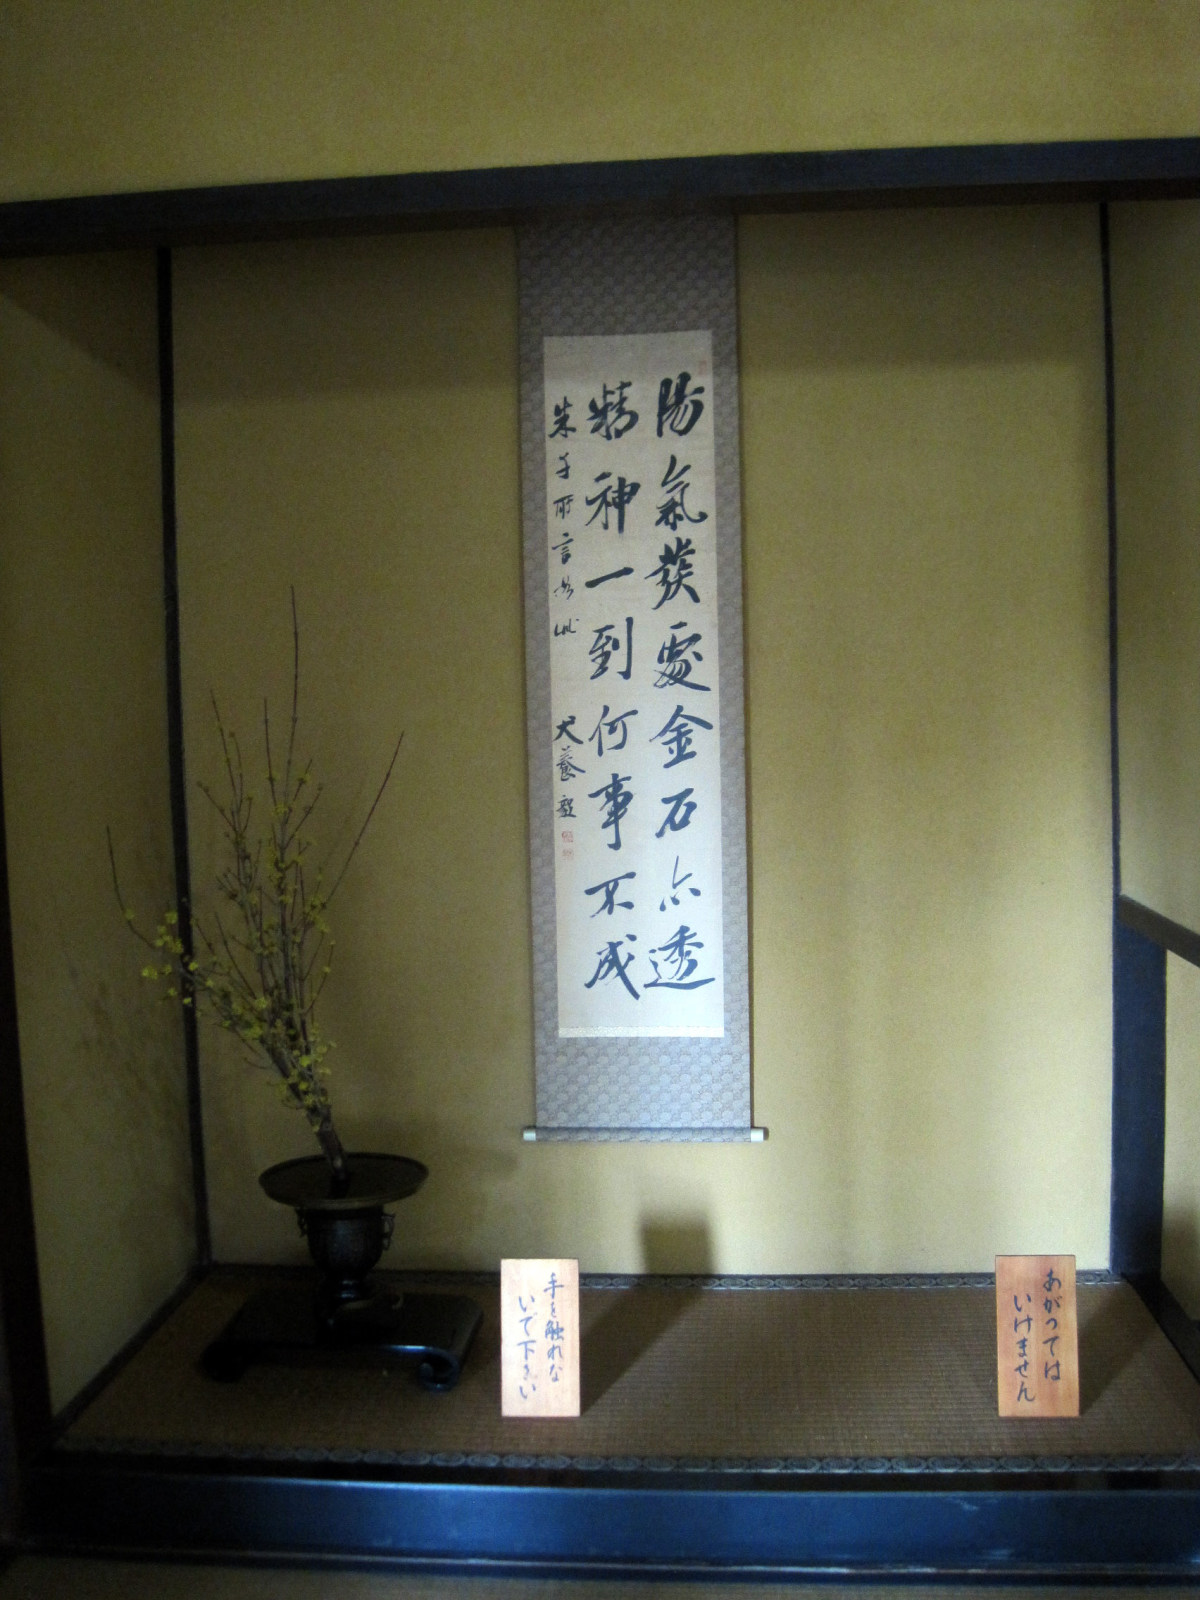 陽氣發處金石亦透
精神一到何事不成
朱子所言如此
犬養毅
手を触れな
いで下さい
あがっては
いけません